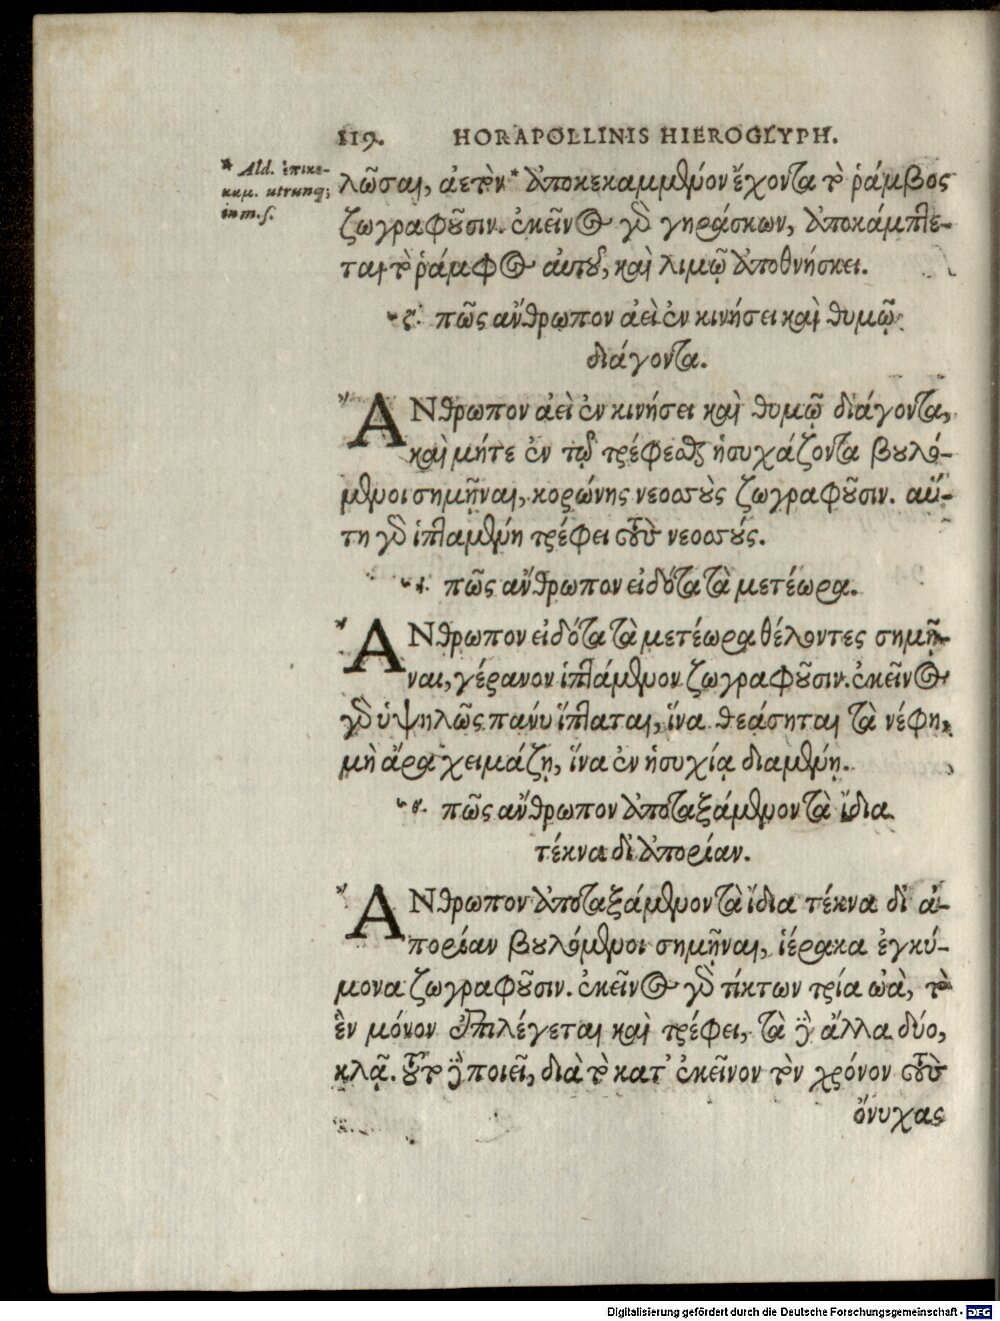 119. HORAPOLLINIS HIEROGLYPH.
* Ald. ἐπικε-
καμ. utrunq;
in m.ſ.
λῶσαι, ἀετὸν * ἀποκεκαμμένον ἔχοντα τὸ ῥάμβος
ζωγραφοῦσιν. ἐκεῖνος γὰρ γηράσκων, ἀποκάμπτε-
ται τὸ ῥάμφος αὐτοῦ, καὶ λιμῷ ἀποθνήσκει.
πῶς ἄνθρωπον ἀεὶ ἐν κινήσει καὶ θυμῷ
διάγοντα.
ΑΝθρωπον ἀεὶ ἐν κινήσει καὶ θυμῷ διάγοντα,
καὶ μήτε ἐν τῷ τρέφεσθαι ἡσυχάζοντα βουλό-
μενοι σημῆναι, κορώνης νεοσσοὺς ζωγραφοῦσιν. αὕ-
τη γὰρ ἱπταμένη τρέφει τοὺς νεοσσούς.
πῶς ἄνθρωπον εἰδότα τὰ μετέωρα.
ΑΝθρωπον εἰδότα τὰ μετέωρα θέλοντες σημῆ-
ναι, γέρανον ἱπτάμενον ζωγραφοῦσιν. ἐκεῖνος
γὰρ ὑψηλῶς πάνυ ἵπταται, ἵνα θεάσηται τὰ νέφη,
μὴ ἄρα χειμάζῃ, ἵνα ἐν ἡσυχίᾳ διαμένῃ.
πῶς ἄνθρωπον ἀποταξάμενον τὰ ἴδια
τέκνα δι' ἀπορίαν.
ΑΝθρωπον ἀποταξάμενον τὰ ἴδια τέκνα δι' ἀ-
πορίαν βουλόμενοι σημῆναι, ἱέρακα ἐγκύ-
μονα ζωγραφοῦσιν. ἐκεῖνος γὰρ τίκτων τρία ὠὰ, τὸ
ἓν μόνον ἐπιλέγεται καὶ τρέφει, τὰ δὲ ἄλλα δύο,
κλᾷ. τοῦτο δὲ ποιεῖ, διὰ τὸ κατ' ἐκεῖνον τὸν χρόνον τοὺς
ὄνυχας
Digitalisierung gefördert durch die Deutsche Forschungsgemeinschaft - DFG